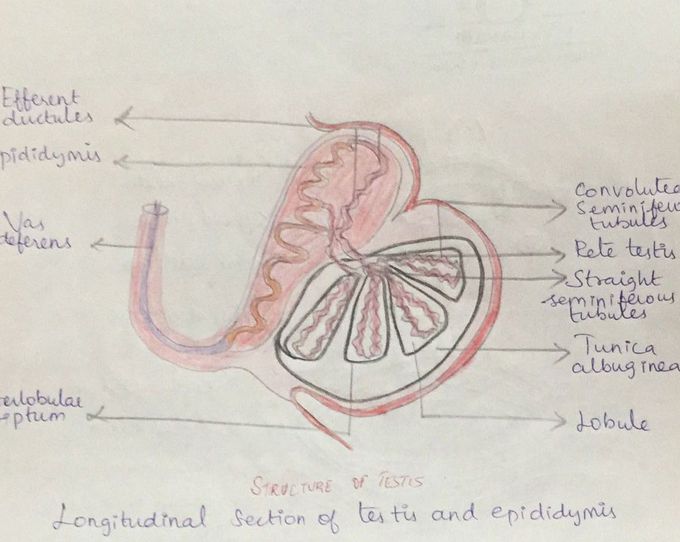 Efferent
ductules
pididymis
Vas
deferens
terlobular
eptum
Convolute
Seminifou
tubules
Rete testis
Straight
seminiferous
tubules
Tunica
albuginea
Lobule
STRUCTURE OF TESTIS
Longitudinal Section of testis and epididymis